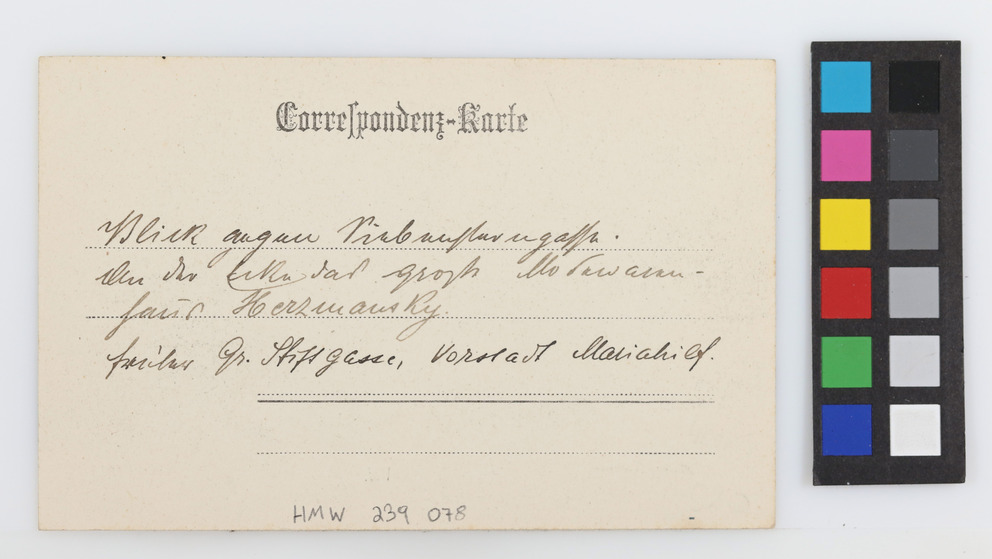 Correspondenz-Karte
Blick gegen Siebensterngasse.
An der Ecke das große Modewaren-
haus Herzmansky.
früher Gr. Stiftgasse, Vorstadt Mariahilf.
HMW 239 078